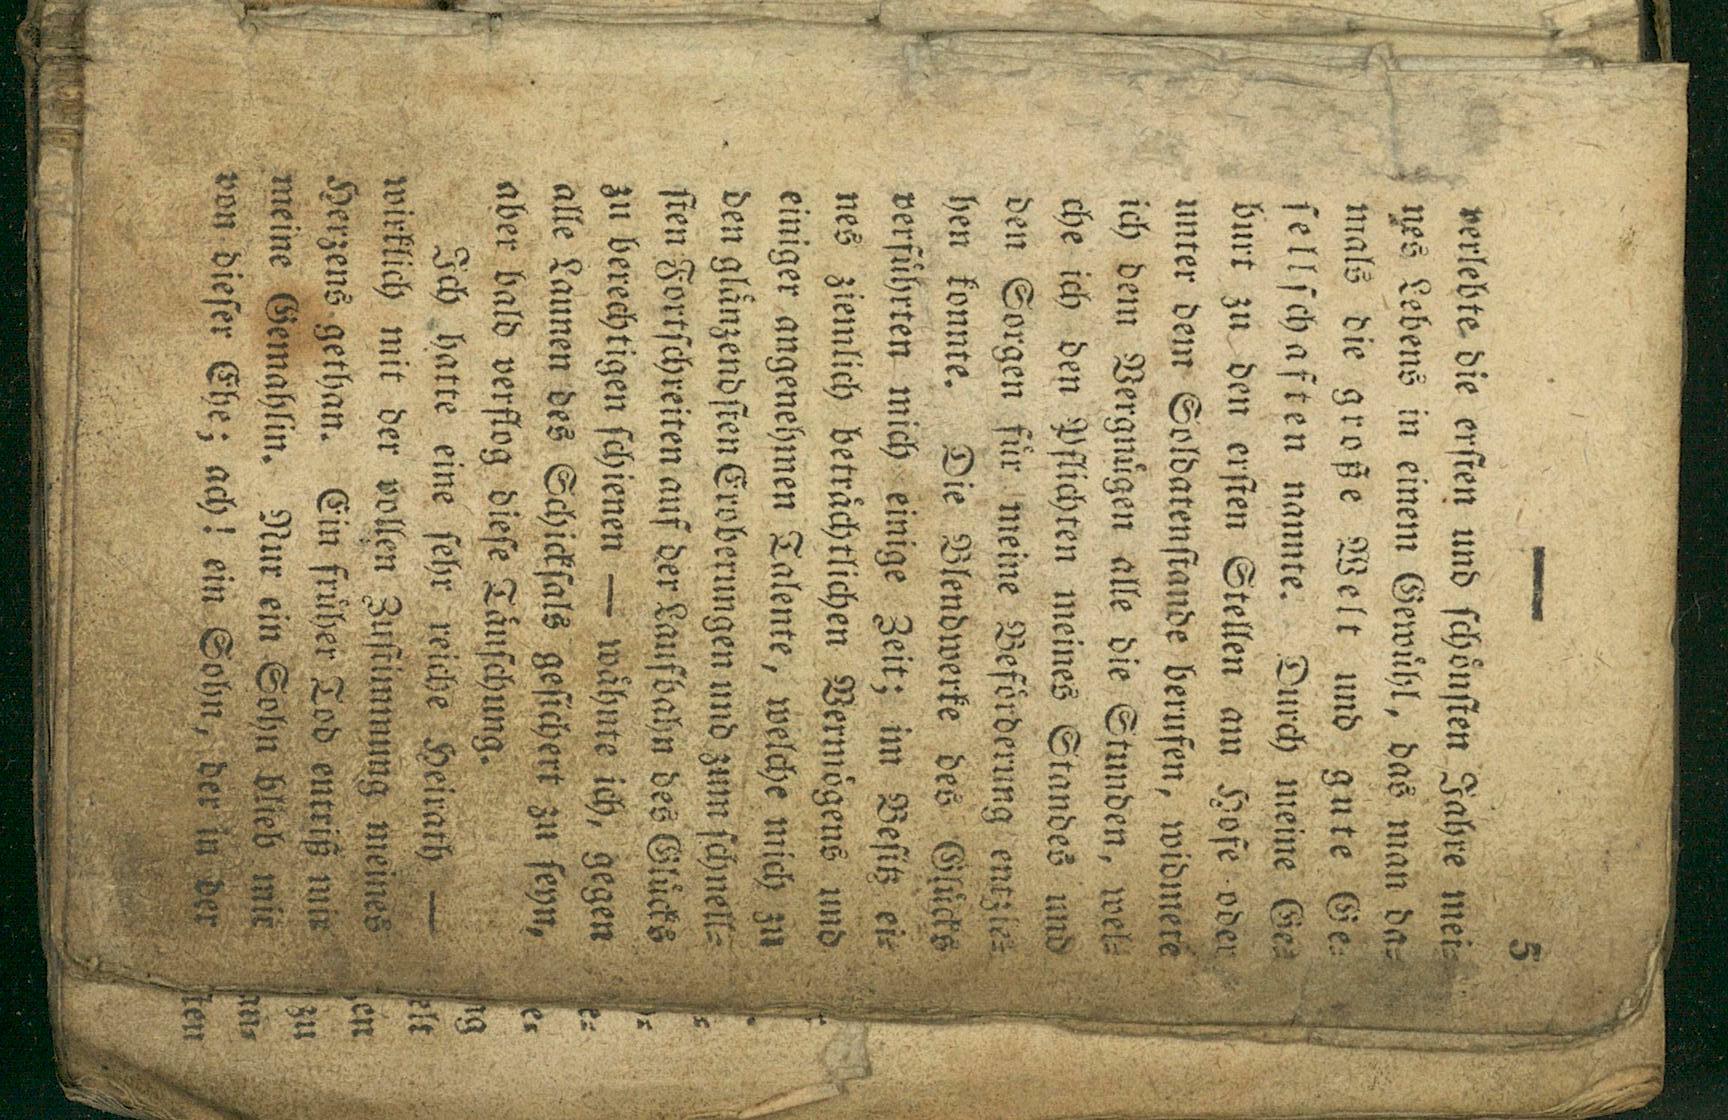 — 5
verlebte die ersten und schönsten Jahre mei-
nes Lebens in einem Gewühl, das man da-
mals die große Welt und gute Ge-
sellschaften nannte. Durch meine Ge-
burt zu den ersten Stellen am Hofe oder
unter dem Soldatenstande berufen, widmete
ich dem Vergnügen alle die Stunden, wel-
che ich den Pflichten meines Standes und
den Sorgen für meine Beförderung entzie-
hen konnte. Die Blendwerke des Glücks
verführten mich einige Zeit; im Besitz ei-
nes ziemlich beträchtlichen Vermögens und
einiger angenehmen Talente, welche mich zu
den glänzendsten Eroberungen und zum schnell-
sten Fortschreiten auf der Laufbahn des Glücks
zu berechtigen schienen — wähnte ich, gegen
alle Launen des Schicksals gesichert zu seyn,
aber bald verflog diese Täuschung.
Ich hatte eine sehr reiche Heirath —
wirklich mit der vollen Zustimmung meines
Herzens gethan. Ein früher Tod entriß mir
meine Gemahlin. Nur ein Sohn blieb mir
von dieser Ehe; ach! ein Sohn, der in der